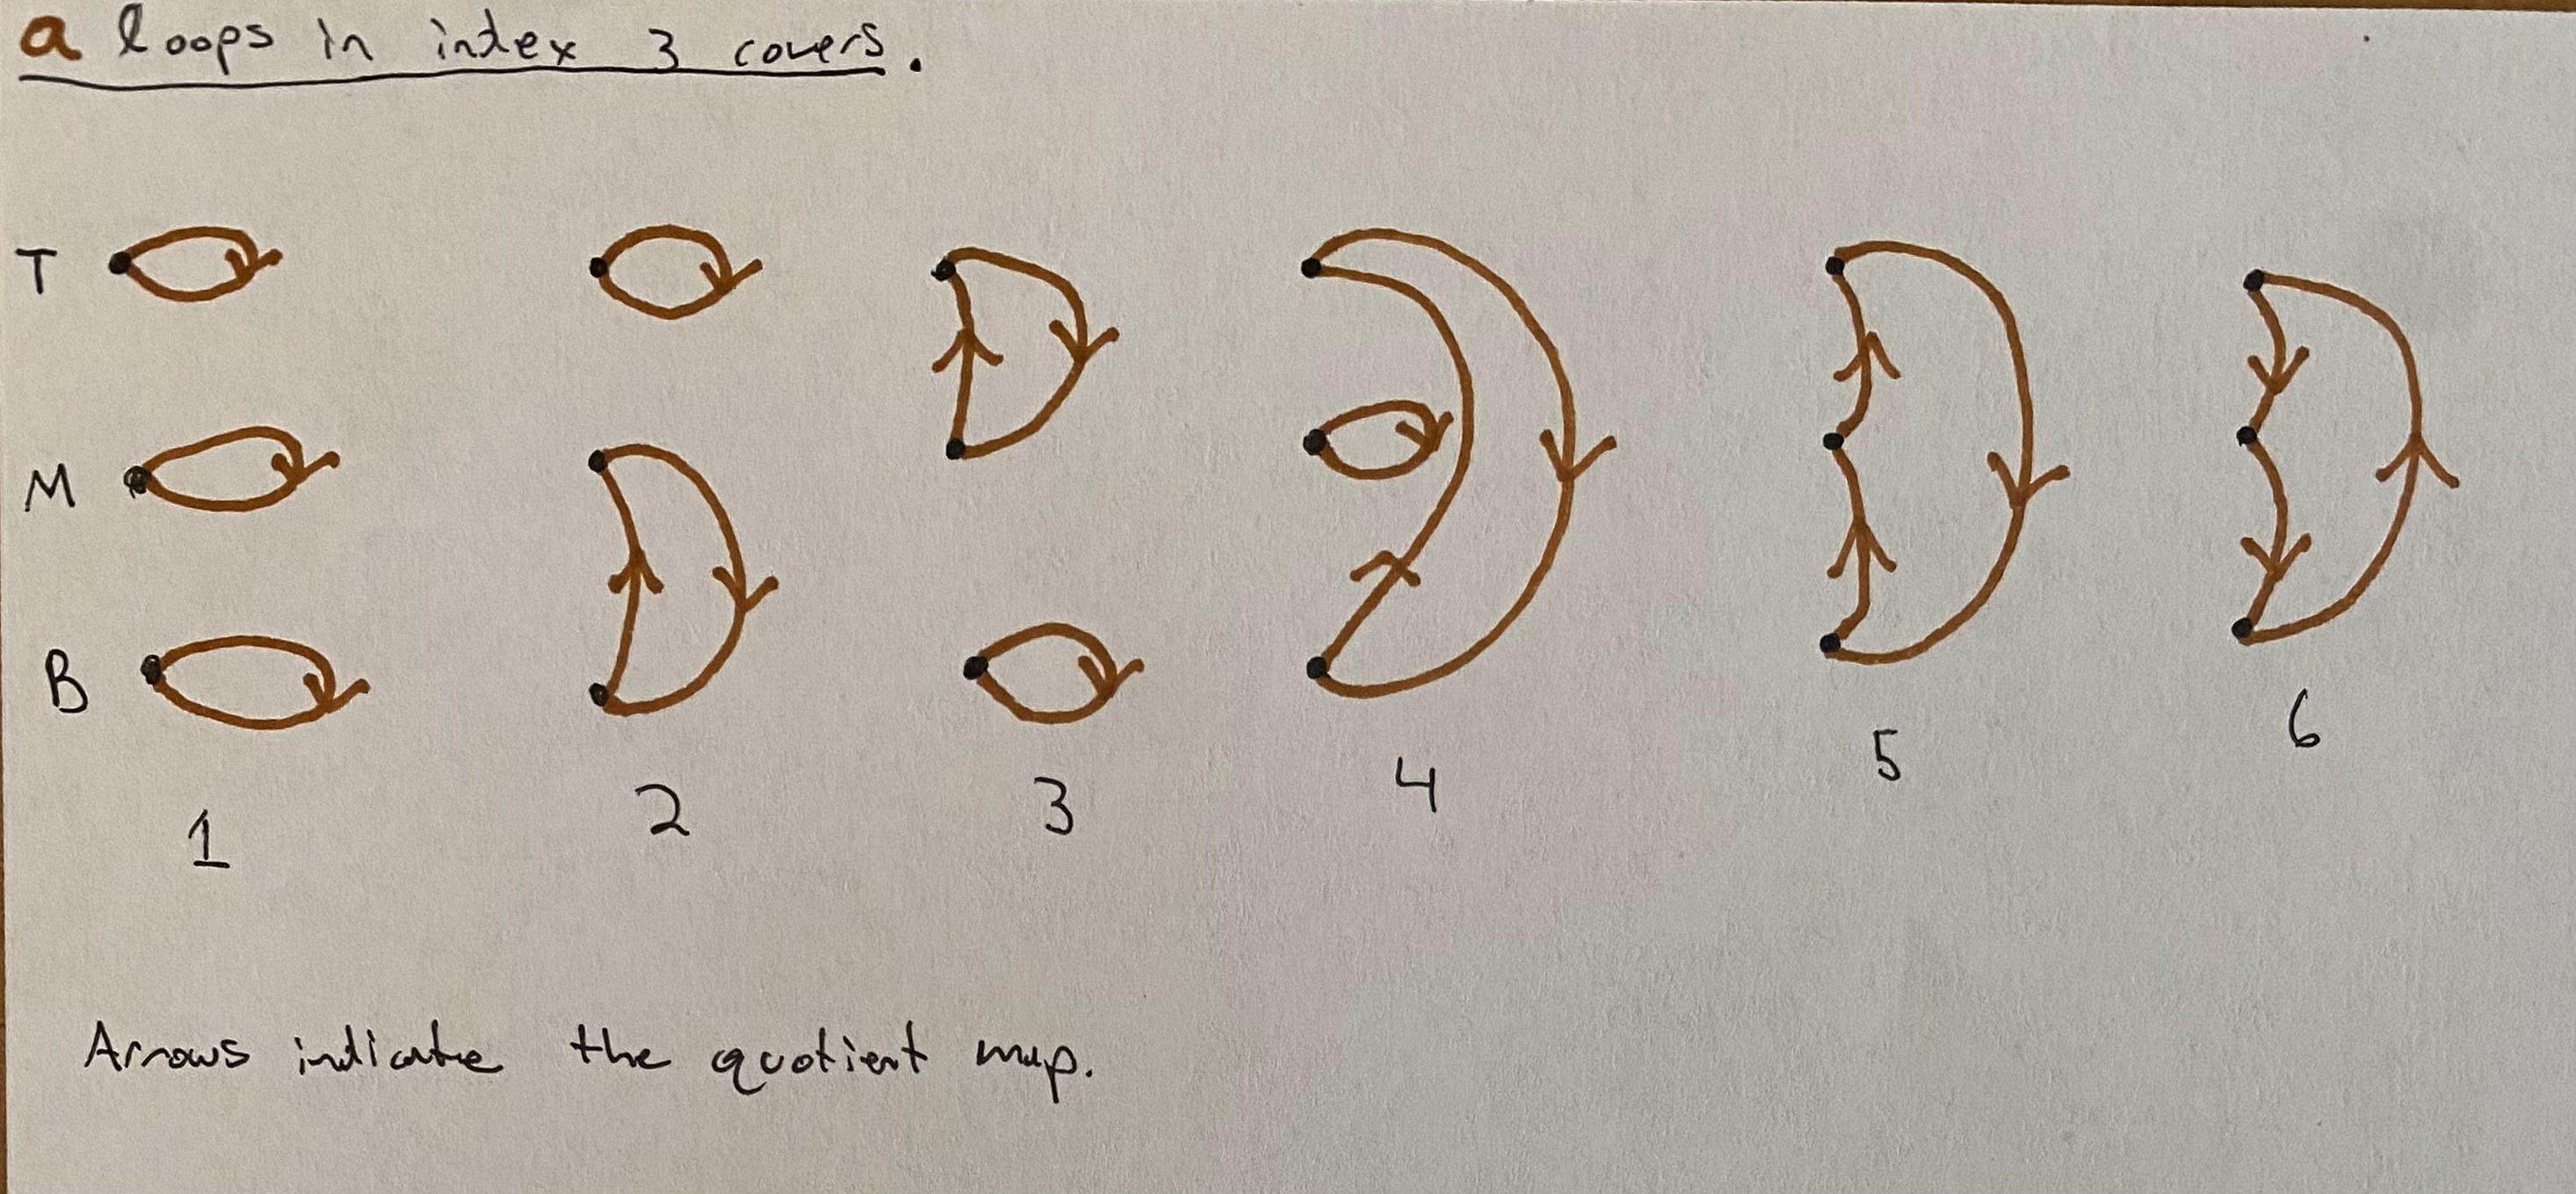 a loops in index 3 covers.
T
M
B
1 2 3 4 5 6
Arrows indicate the quotient map.